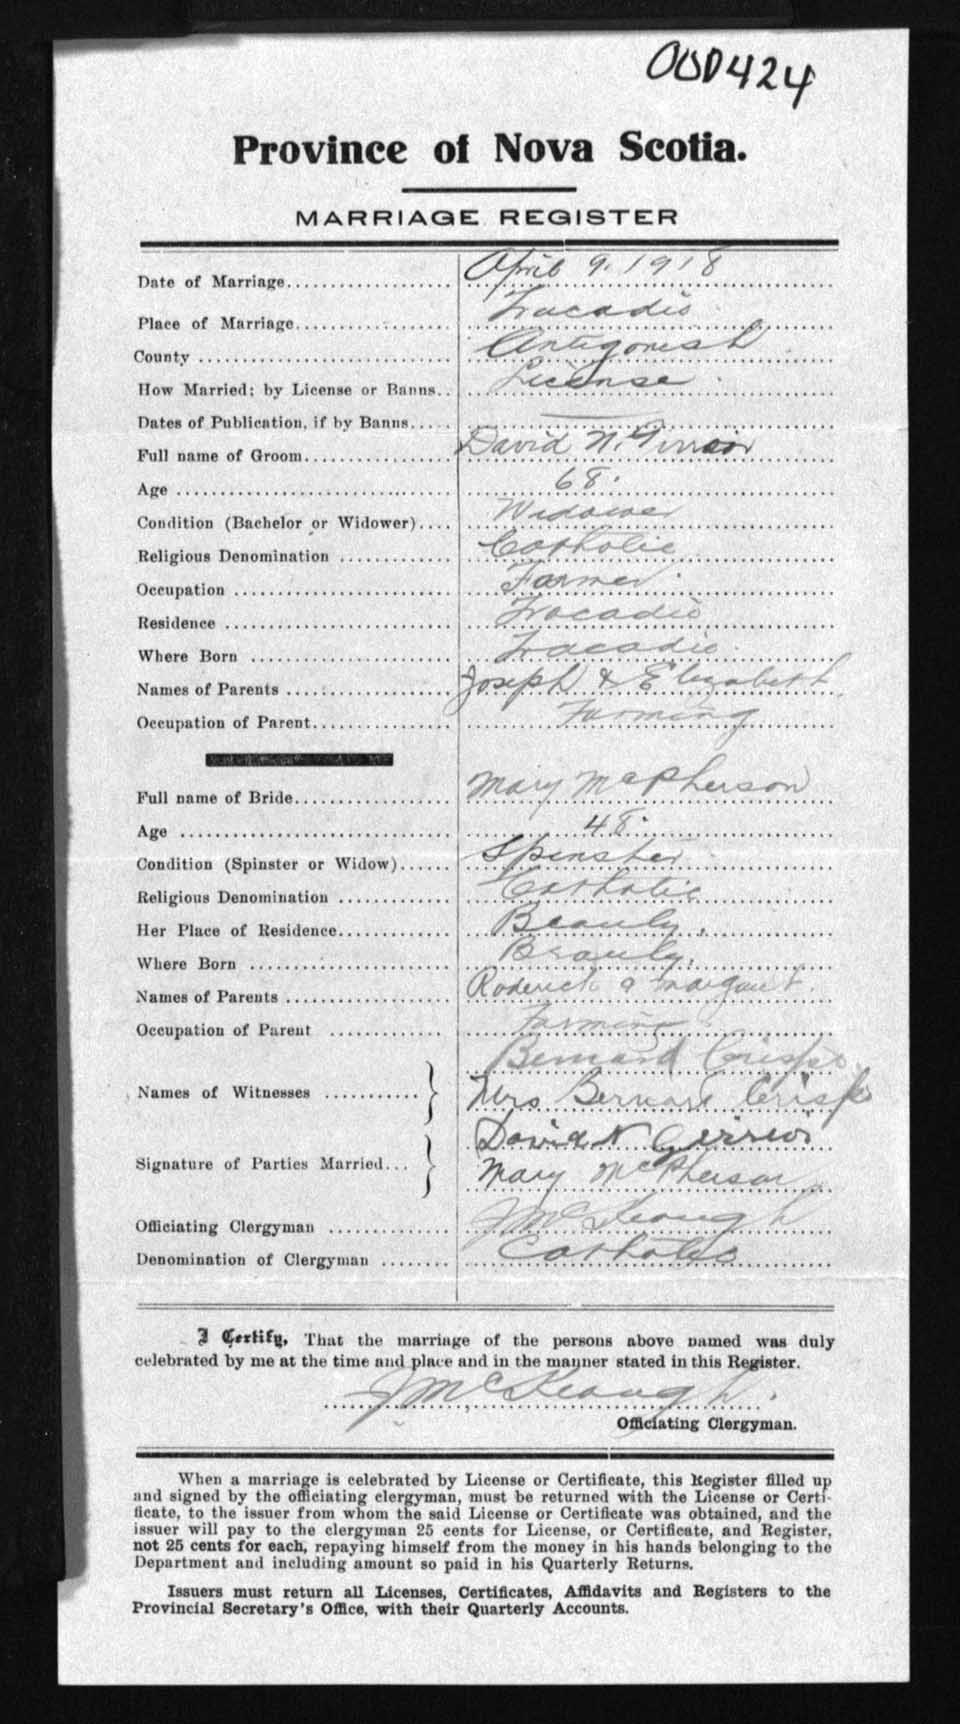 000424
Province of Nova Scotia.
MARRIAGE REGISTER
Date of Marriage April 9. 1918
Place of Marriage Tracadie
County Antigonish
How Married; by License or Banns License
Dates of Publication, if by Banns —
Full name of Groom David N. Girroir
Age 68.
Condition (Bachelor or Widower) Widower
Religious Denomination Catholic
Occupation Farmer
Residence Tracadie
Where Born Tracadie
Names of Parents Joseph & Elizabeth
Occupation of Parent Farming
Full name of Bride Mary McPherson
Age 48.
Condition (Spinster or Widow) Spinster
Religious Denomination Catholic
Her Place of Residence Beauly.
Where Born Beauly.
Names of Parents Roderick & Margaret.
Occupation of Parent Farming
Names of Witnesses Bernard Crispo
Mrs Bernard Crispo
Signature of Parties Married David N Girroir
Mary McPherson
Officiating Clergyman J McKeough
Denomination of Clergyman Catholic
I Certify, That the marriage of the persons above named was duly
celebrated by me at the time and place and in the manner stated in this Register.
J McKeough.
Officiating Clergyman.
When a marriage is celebrated by License or Certificate, this Register filled up
and signed by the officiating clergyman, must be returned with the License or Certi-
ficate, to the issuer from whom the said License or Certificate was obtained, and the
issuer will pay to the clergyman 25 cents for License, or Certificate, and Register,
not 25 cents for each, repaying himself from the money in his hands belonging to the
Department and including amount so paid in his Quarterly Returns.
Issuers must return all Licenses, Certificates, Affidavits and Registers to the
Provincial Secretary's Office, with their Quarterly Accounts.